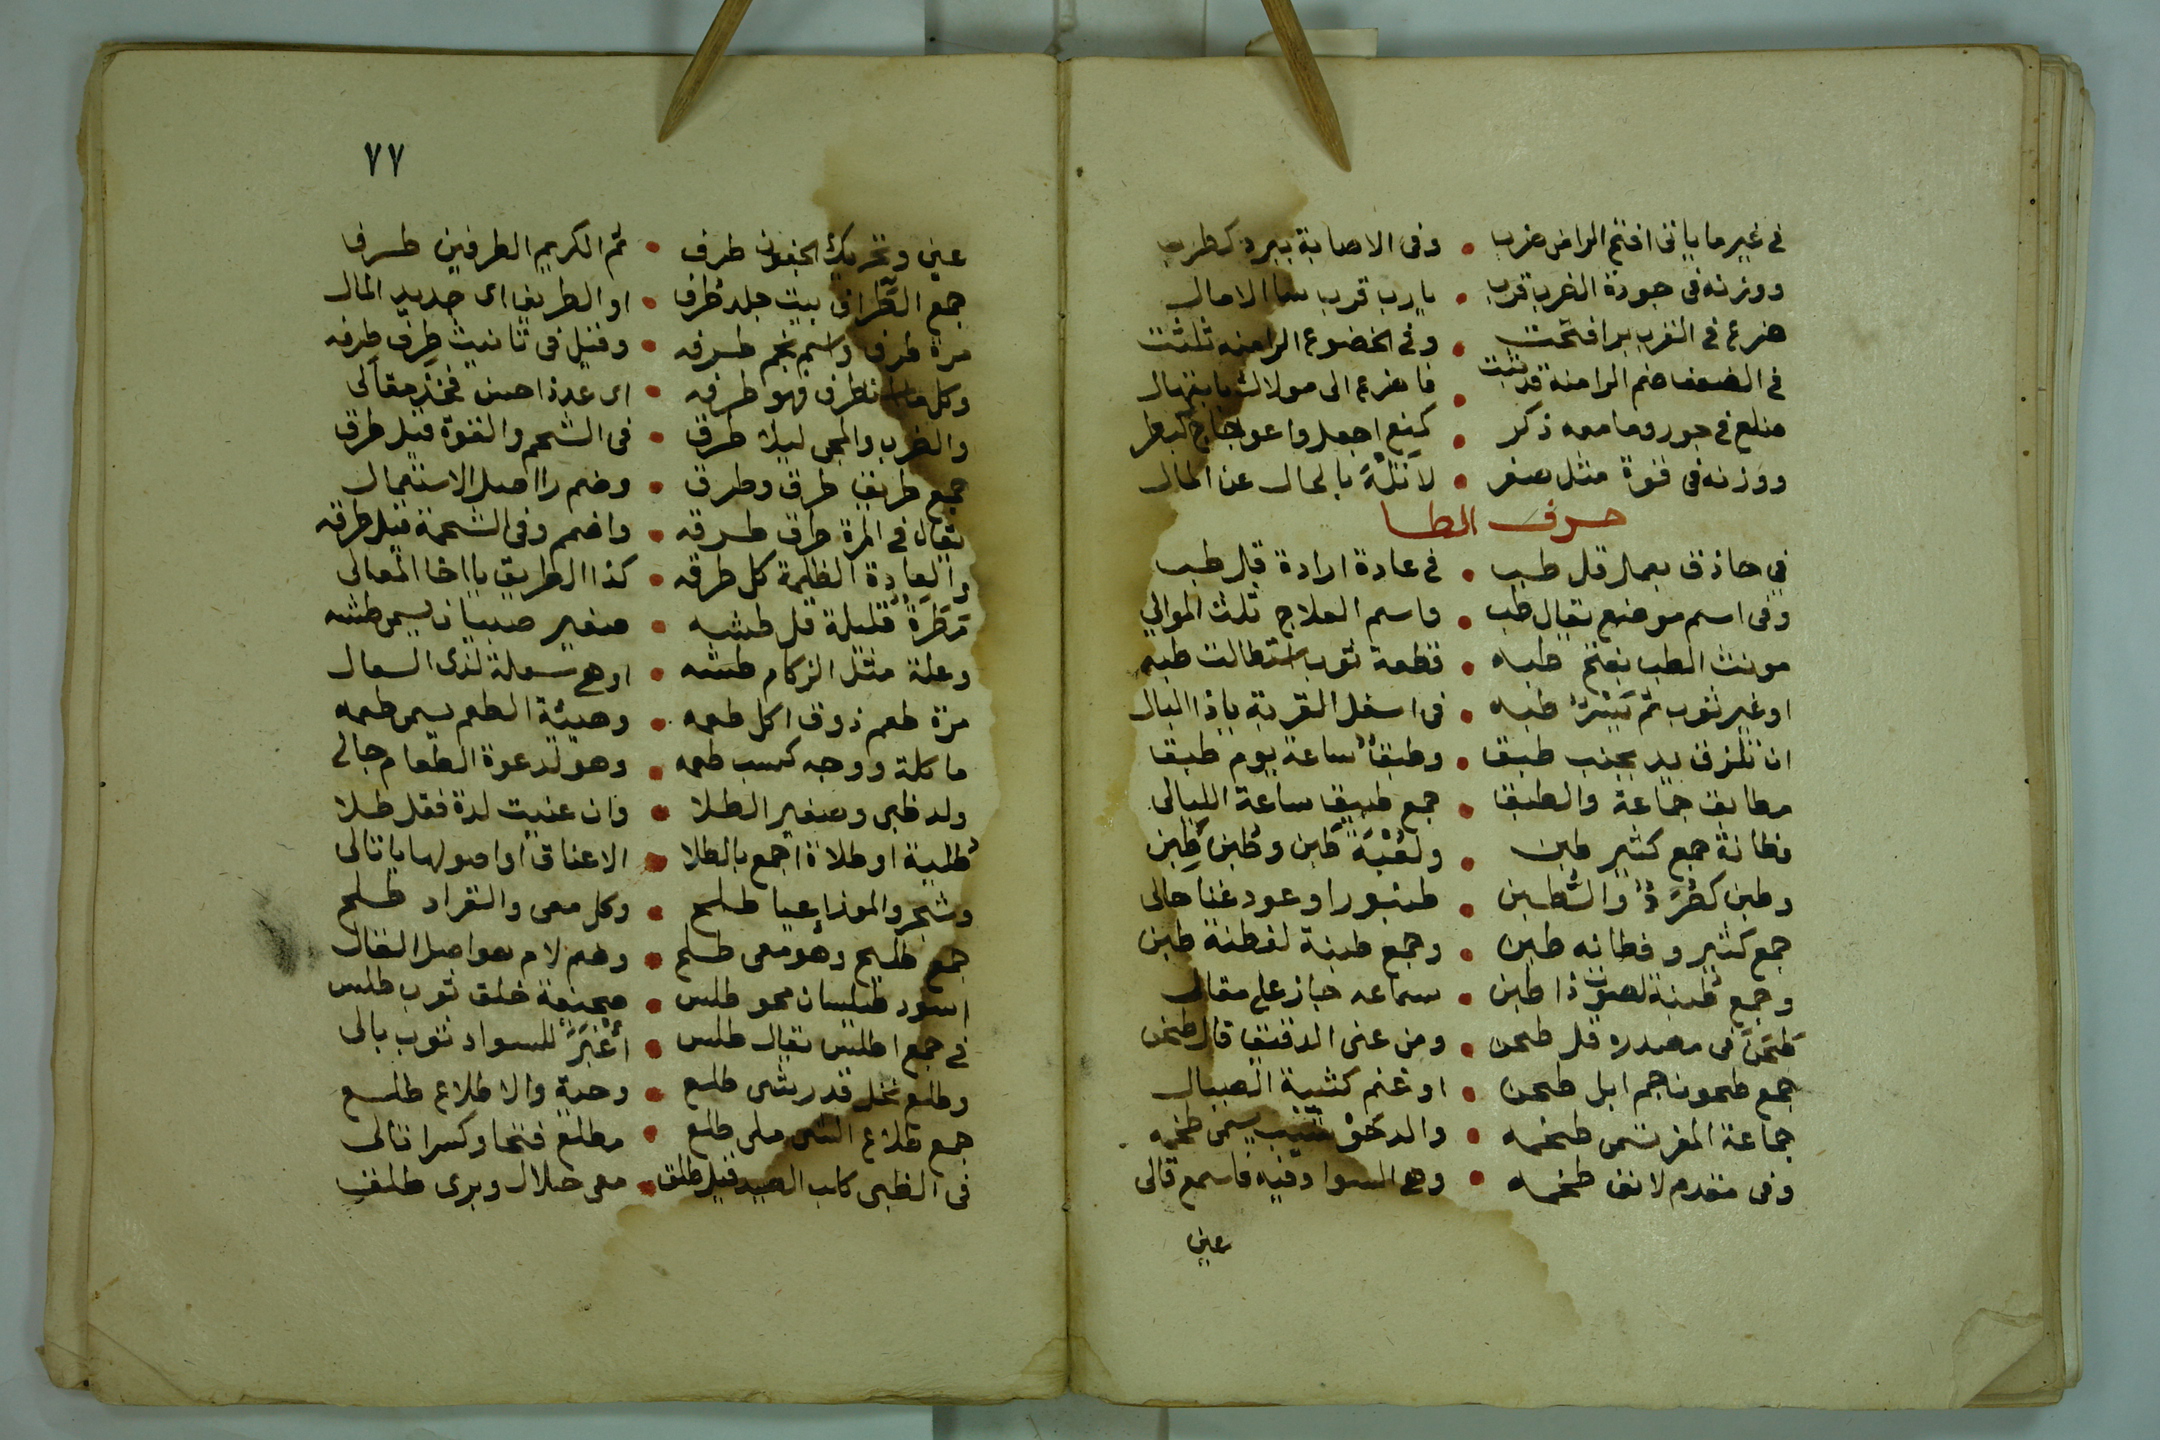 في غير ما ياتي افتح الراض ضرب • وفي الاصابة ببرد كطرب
ووزنه في جودة الضرب قرب • يارب قرب سا الامال
ضرع في القرب برا فتحت • وفي الخضوع الرامنه ثلثت
في الضعف ضم الرامنة قد ثبت • فاضرع الى مولاك بابتهال
ضلع في جور وما معه ذكر • كنع اجعل واعوجاج كبطر
ووزنه في قوة مثل صغر • لا تله بالحال عن المال
حرف الطا
في حاذق بعمل قل طب • في عادة ارادة قل طب
وفي اسم موضع يقال طب • واسم العلاج ثلث الموالي
مونث الطب بفتح طبه • قطعة ثوب استطالت طبه
او غير ثوب ثم طبه • في اسفل القربة ياذا البال
ان تلزق يد بجنب طبق • وطبق ساعة يوم طبق
مطابق جماعة والطبق • جمع طبيق ساعة الليالي
فطانة جمع كثير طبن • ولعبة طبن وطبن طبن
وطبن كطرة والطبن • طنبورا وعود غنا حالي
جمع كثير وفطانه طبن • وجمع طبنة لفطنة طبن
وجمع طبنة لصوت ذا طبن • سماعه حاز على مقال
طحن في مصدره قل طحن • ومن عنى الدقيق قال طحن
جمع طحون اجم ابل طحن • او غنم كثيرة العيال
جماعة المعز تسمى طخمه • والدخو يسمى طخمه
وفي مقدم لانف طخمه • وهي السواد فيه فاسمع قالي
عين
٧٧
عين وتحريك الجفون طرف • ثم الكريم الطرفين طرف
جمع الطراف بيت جلد طرف • او الطريف اي جديد المال
مرة طرف واسم نجم طرفه • وقيل في تانيث طرف طرفه
وكل ما تطرف فهو طرفه • اي عدة احسن فخذ مقالي
والضرب والمجى ليلا طرق • في الشحم والقوة قيل طرق
جمع طريق طرق وطرق • وضم را اصل الاستعمال
يقال في المرة طرق طرقه • واضمم وفي الشحمة قيل طرقه
والعادة الظلمة كل طرقه • كذا الطريق يا اخا المعالي
مرة قليلة قل طشه • صغير صبيان يسمى طشه
وعلة مثل الزكام طشه • او هي سعلة لذي السعال
مرة طعم ذوق اكل طعمه • وهيئة الطعم يسمى طعمه
ماكلة ووجه كسب طعمه • وهو لدعوة الطعام جالي
ولد ظبى وصغير الطلا • وان عنيت لذة فقل طلا
طلية او طلاة اجمع بالطلا • الاعناق او اصولها يا تالي
وشجر والموز اعيا طلح • وكل معى والقراد طلح
جمع طليح وهو معى طلح • وضم لام هو اصل القال
اسود طيلسان محو طلس • صحيفة خلق ثوب طلس
في جمع اطلس يقال طلس • اغبر للسواد ثوب بالي
وطلع نخل قدر شى طلع • وحية والاطلاع طلع
جمع طلاع الشى ملى طلع • مطلع فتحا وكسرا تالي
في الظبى كلب الصيد قيل طلق • مع حلال وبرى طلق